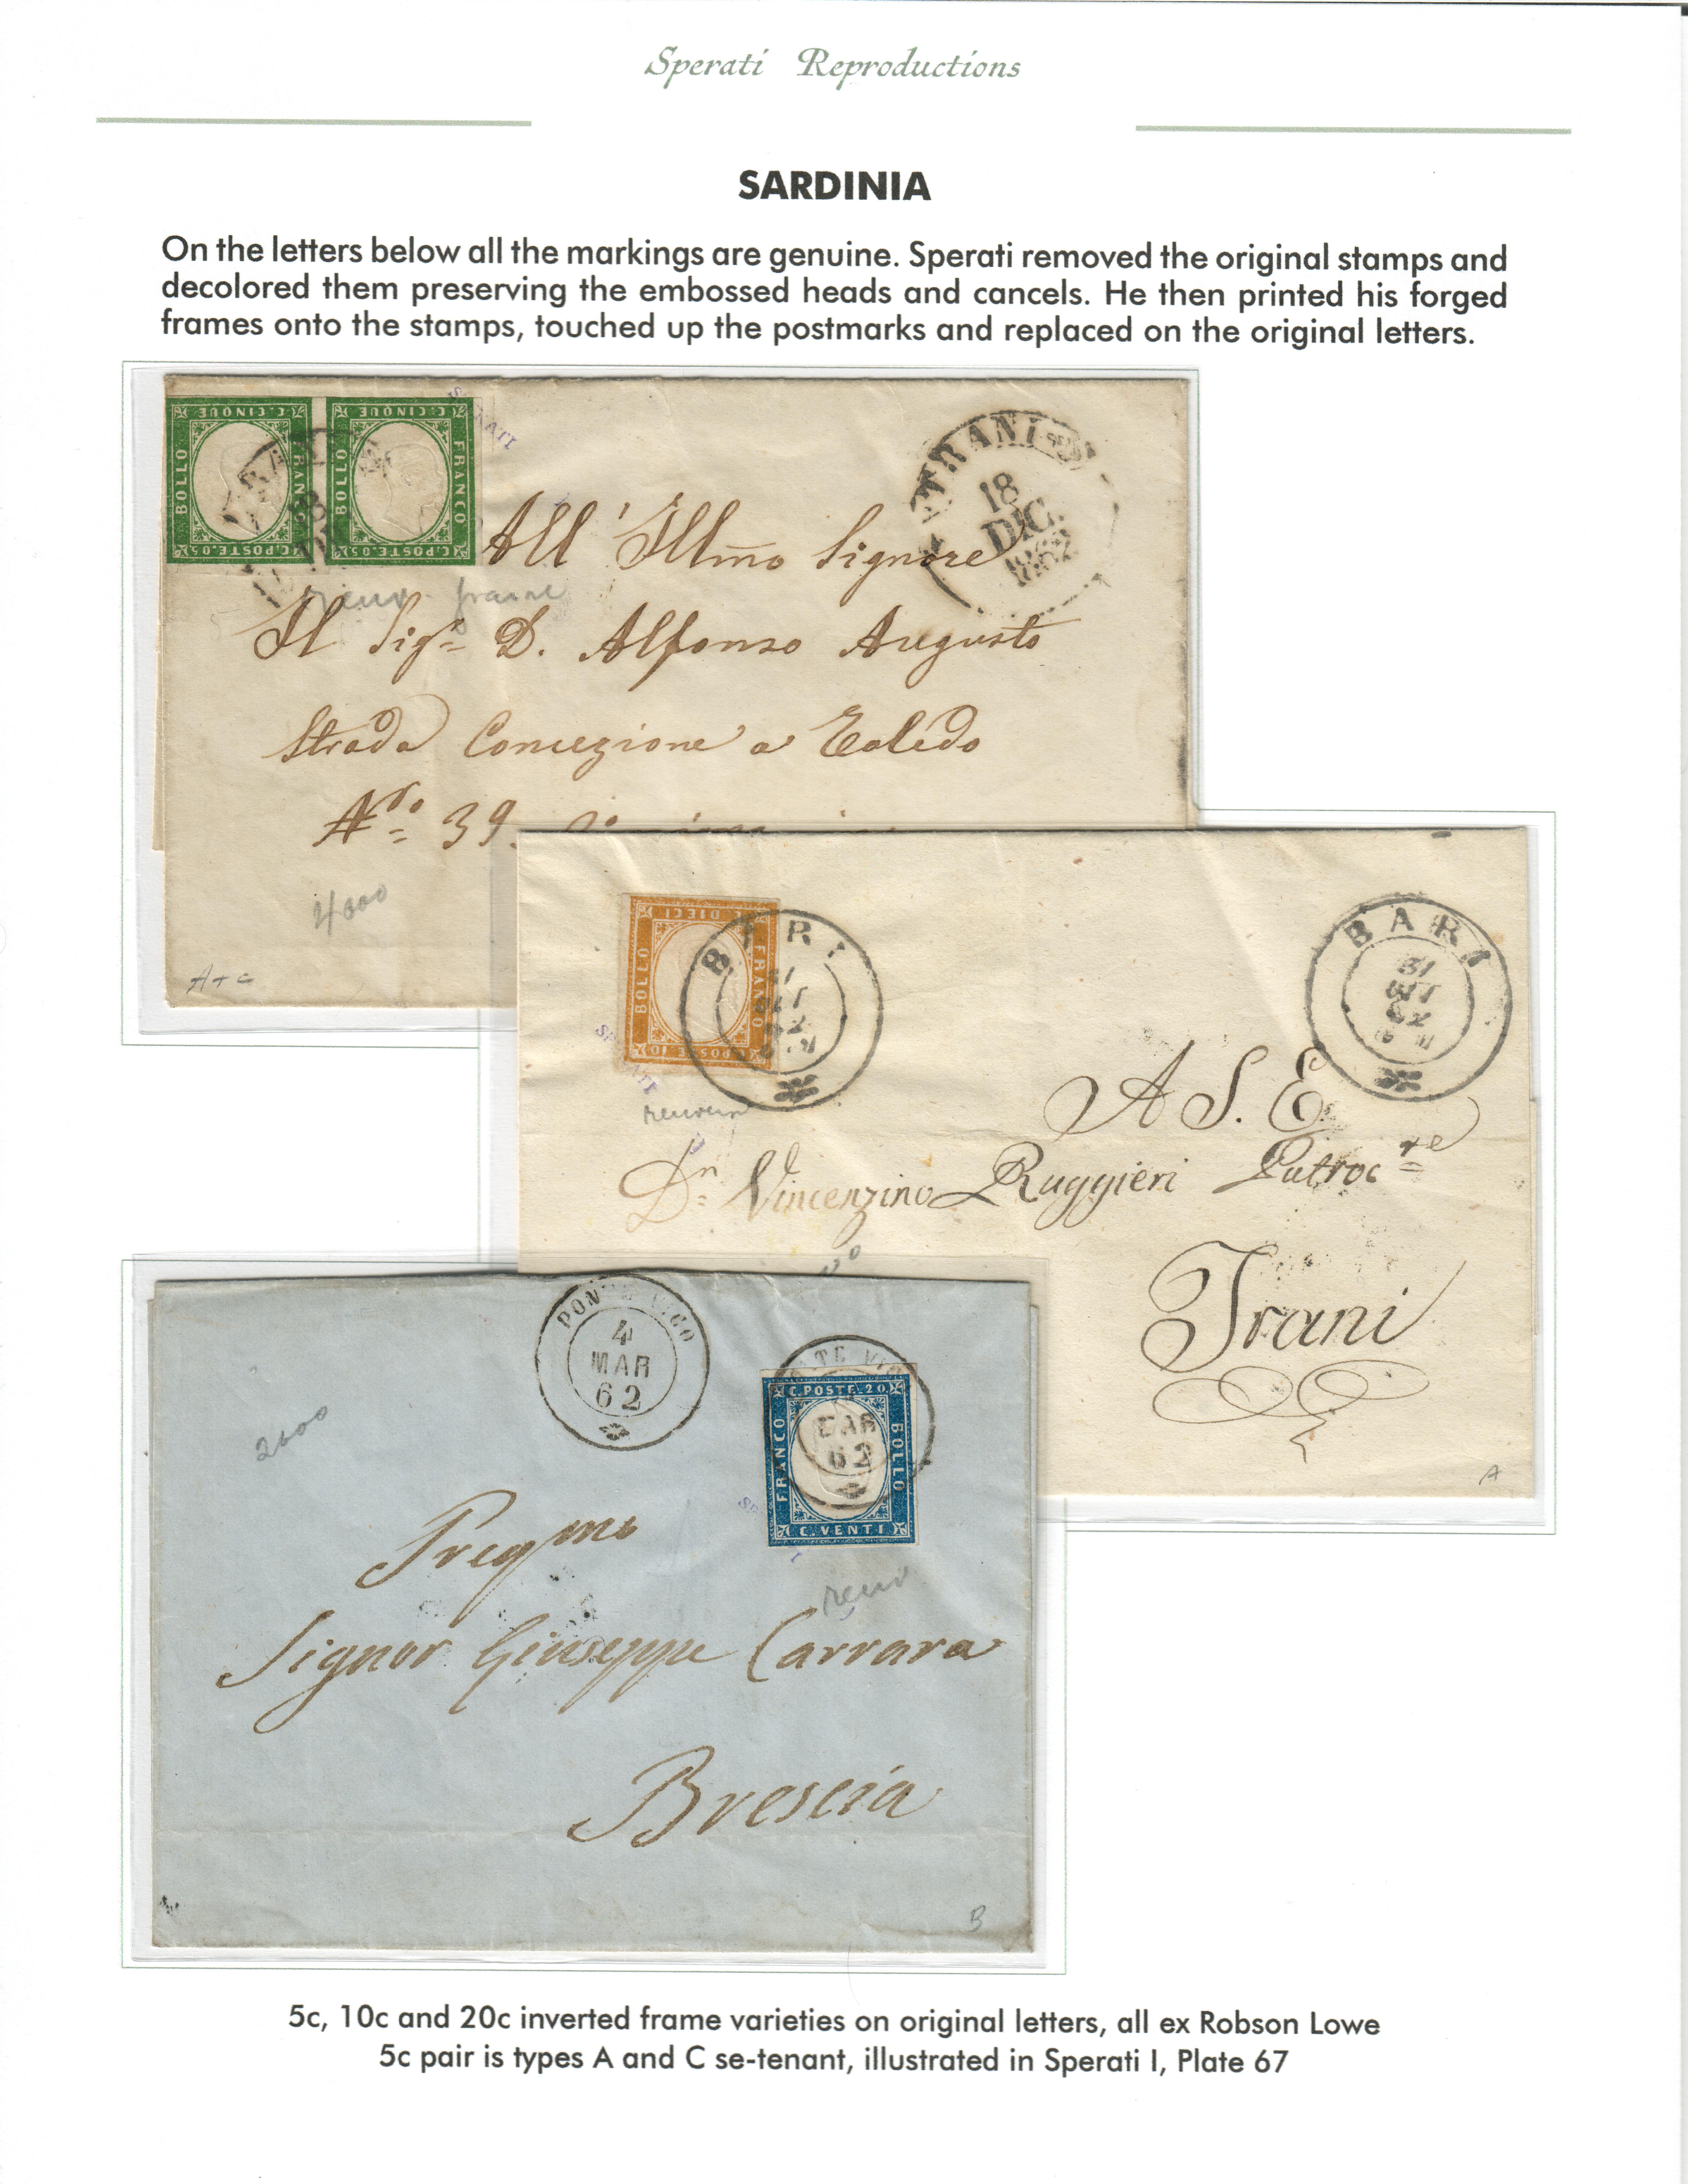 Sperati Reproductions
SARDINIA
On the letters below all the markings are genuine. Sperati removed the original stamps and
decolored them preserving the embossed heads and cancels. He then printed his forged
frames onto the stamps, touched up the postmarks and replaced on the original letters.
C. CINQUE
BOLLO
FRANCO
C. POSTE. 05
C. CINQUE
BOLLO
FRANCO
C. POSTE. 05
TRANI
18
DIC.
1862
All' Ill̄mo Signore
Il Sigr D. Alfonso Augusto
Strada Concezione a Toledo
Nro 39
4000
A+C
C. DIECI
BOLLO
FRANCO
C. POSTE 10
BARI
31
BARI
31
A S. E.
Dn Vincenzino Ruggieri Patrocre
Trani
A
PONTE VICO
4
MAR
62
C. POSTE. 20.
FRANCO
BOLLO
C. VENTI
62
2000
Pregmo
Signor Giuseppe Carrara
Brescia
B
5c, 10c and 20c inverted frame varieties on original letters, all ex Robson Lowe
5c pair is types A and C se-tenant, illustrated in Sperati I, Plate 67